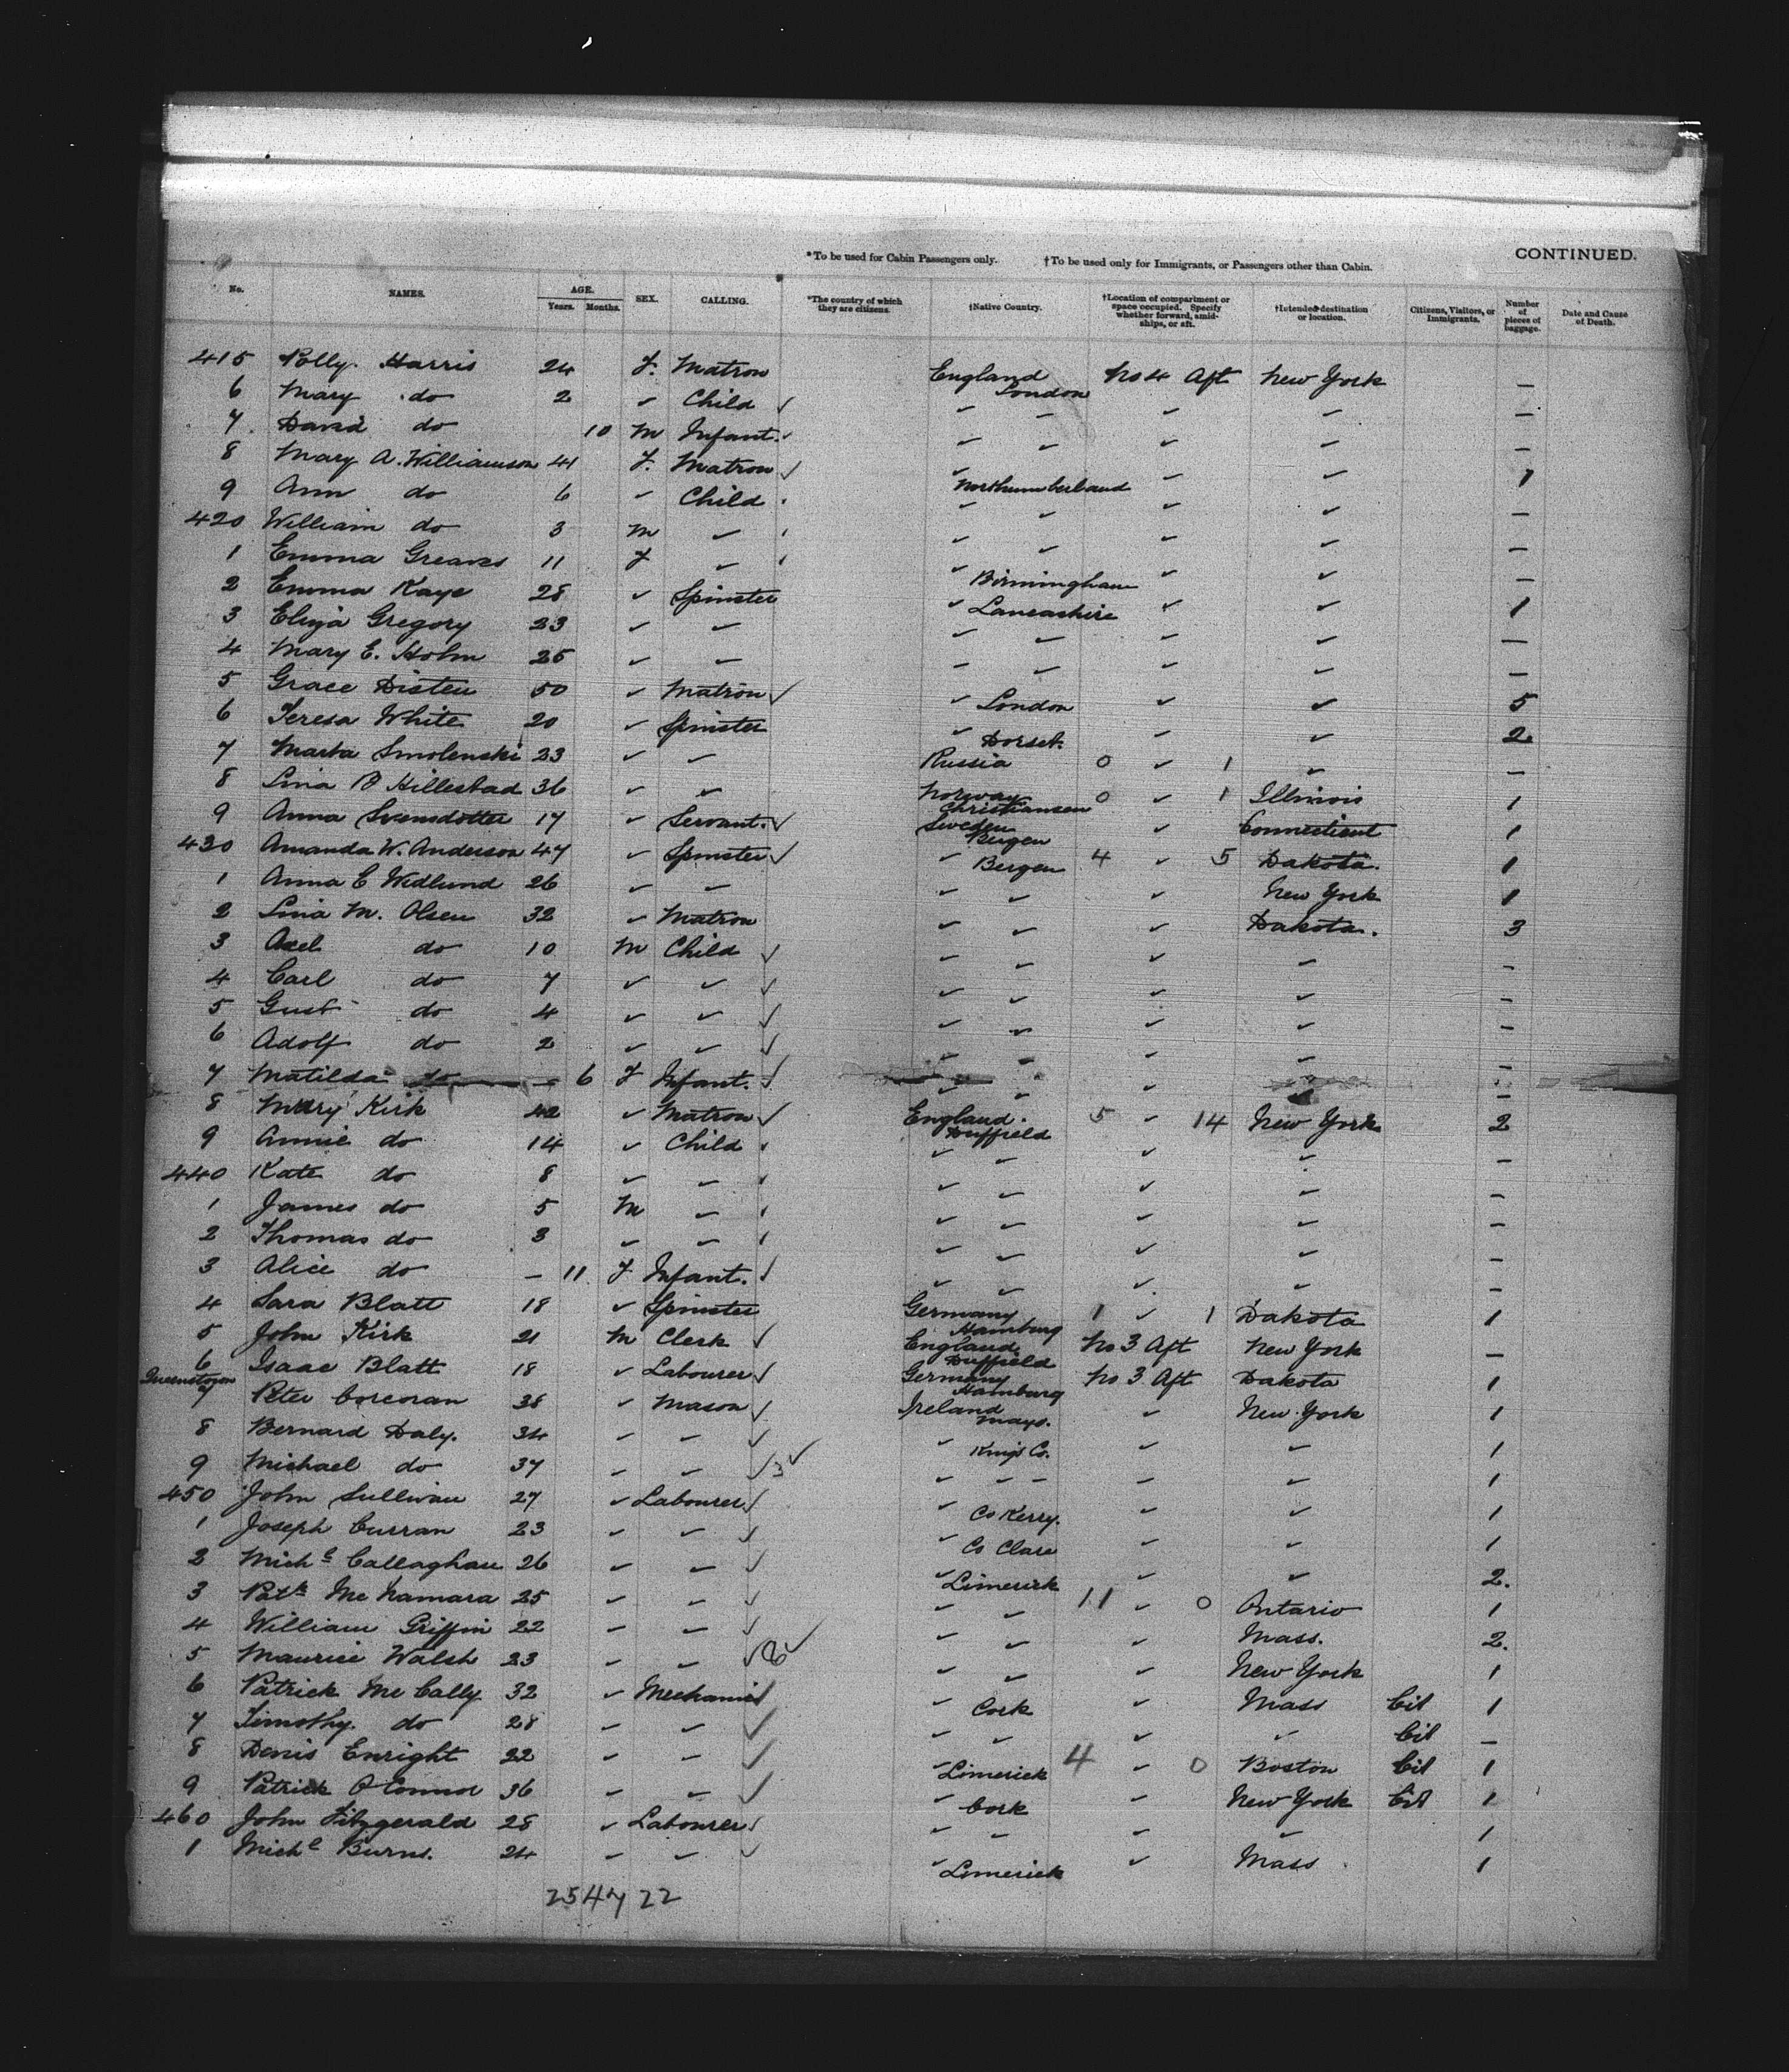 CONTINUED.
*To be used for Cabin Passengers only. †To be used only for Immigrants, or Passengers other than Cabin.
No. NAMES. AGE. Years. Months. SEX. CALLING. *The country of which they are citizens. †Native Country. †Location of compartment or space occupied. Specify whether forward, amidships, or aft. †Intended destination or location. Citizens, Visitors, or Immigrants. Number of pieces of baggage. Date and Cause of Death.
415 Polly Harris 24 F. Matron England London No 4 Aft New York —
6 Mary do 2 ✓ Child ✓ ✓ ✓ ✓ ✓ —
7 David do 10 M Infant. ✓ ✓ ✓ ✓ —
8 Mary A. Williamson 41 F. Matron ✓ ✓ Northumberland ✓ ✓ 1
9 Ann do 6 ✓ Child ✓ ✓ ✓ ✓ —
420 William do 3 M ✓ ✓ ✓ ✓ ✓ —
1 Emma Greaves 11 F ✓ ✓ Birmingham ✓ ✓ —
2 Emma Kaye 28 ✓ Spinster ✓ Lancashire ✓ ✓ 1
3 Eliza Gregory 23 ✓ ✓ ✓ ✓ ✓ ✓ —
4 Mary E. Holm 25 ✓ ✓ ✓ ✓ ✓ ✓ —
5 Grace Disten 50 ✓ Matron ✓ ✓ London ✓ ✓ 5
6 Teresa White 20 ✓ Spinster ✓ Dorset. ✓ ✓ 2
7 Marta Smolenski 23 ✓ ✓ Russia 0 ✓ 1 ✓ —
8 Lina B Hillestad 36 ✓ ✓ Norway Christiansen 0 ✓ 1 Illinois 1
9 Anna Svensdotter 17 ✓ Servant. ✓ Sweden Bergen ✓ Connecticut 1
430 Amanda W. Anderson 47 ✓ Spinster ✓ ✓ Bergen 4 ✓ 5 Dakota. 1
1 Anna C Wedlund 26 ✓ ✓ ✓ ✓ ✓ New York 1
2 Lina M. Olsen 32 ✓ Matron ✓ ✓ ✓ Dakota. 3
3 Axel do 10 M Child ✓ ✓ ✓ ✓ ✓ —
4 Carl do 7 ✓ ✓ ✓ ✓ ✓ ✓ ✓ —
5 Gust do 4 ✓ ✓ ✓ ✓ ✓ ✓ ✓ —
6 Adolf do 2 ✓ ✓ ✓ ✓ ✓ ✓ ✓ —
7 Matilda do — 6 F Infant. ✓ ✓ ✓ ✓ —
8 Mary Kirk 42 ✓ Matron ✓ England. Duffield 5 ✓ 14 New York 2
9 Annie do 14 ✓ Child ✓ ✓ ✓ ✓ ✓ —
440 Kate do 8 ✓ ✓ ✓ ✓ ✓ ✓ ✓ —
1 James do 5 M ✓ ✓ ✓ ✓ ✓ ✓ —
2 Thomas do 3 ✓ ✓ ✓ ✓ ✓ ✓ ✓ —
3 Alice do — 11 F Infant. ✓ ✓ ✓ ✓ ✓ —
4 Sara Blatt 18 ✓ Spinster Germany Hamburg 1 ✓ 1 Dakota 1
5 John Kirk 21 M Clerk ✓ England Duffield No 3 Aft New York —
6 Isaac Blatt 18 ✓ Labourer ✓ Germany Hamburg No 3 Aft Dakota 1
Queenstown
7 Peter Corcoran 38 ✓ Mason ✓ Ireland Mayo. ✓ New York 1
8 Bernard Daly. 34 ✓ ✓ ✓ ✓ Kings Co. ✓ ✓ 1
9 Michael do 37 ✓ ✓ ✓ 3 ✓ ✓ ✓ ✓ ✓ 1
450 John Sullivan 27 ✓ Labourer ✓ ✓ Co Kerry. ✓ ✓ 1
1 Joseph Curran 23 ✓ ✓ ✓ ✓ Co Clare ✓ ✓ 1
2 Michl Callaghan 26 ✓ ✓ ✓ ✓ Limerick ✓ ✓ 2.
3 Patk Mc Namara 25 ✓ ✓ ✓ ✓ ✓ 11 ✓ 0 Ontario 1
4 William Griffin 22 ✓ ✓ ✓ ✓ ✓ ✓ Mass. 2.
5 Maurice Walsh 23 ✓ ✓ ✓ ✓ ✓ ✓ New York 1
6 Patrick Mc Cally 32 ✓ Mechanic ✓ ✓ Cork ✓ Mass Cit 1
7 Timothy. do 28 ✓ ✓ ✓ ✓ ✓ ✓ ✓ Cit —
8 Denis Enright 22 ✓ ✓ ✓ ✓ Limerick 4 ✓ 0 Boston Cit 1
9 Patrick O'Connor 36 ✓ ✓ ✓ ✓ Cork ✓ New York Cit 1
460 John Fitzgerald 28 ✓ Labourer ✓ ✓ ✓ ✓ ✓ 1
1 Michl Burns. 24 ✓ ✓ ✓ ✓ Limerick ✓ Mass 1
254722